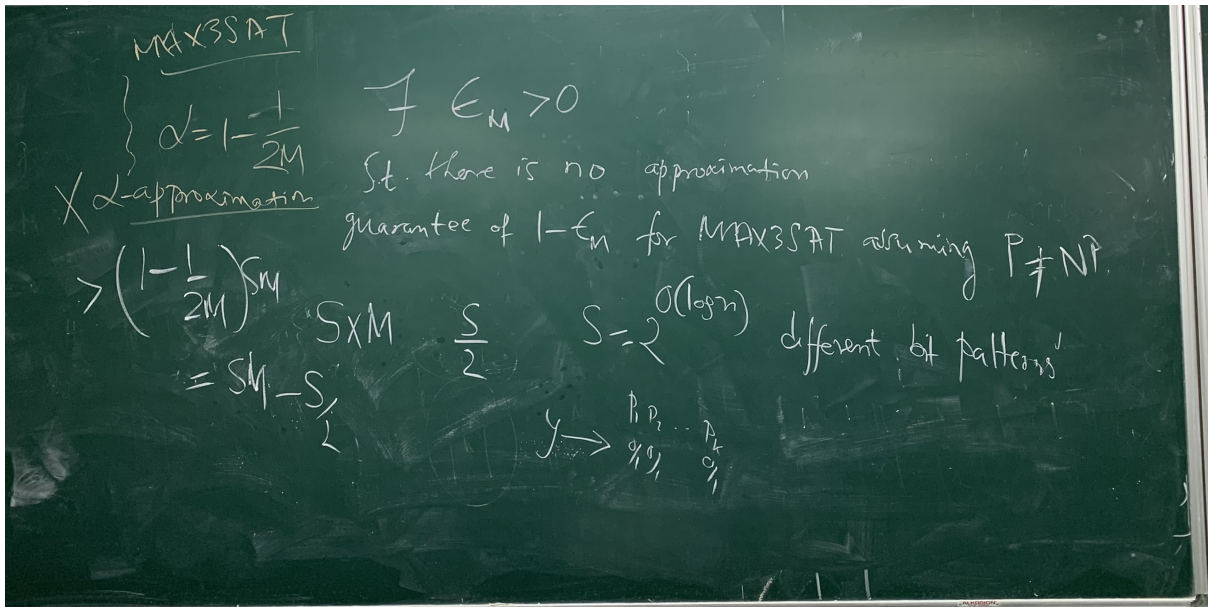 MAX3SAT
α = 1 - 1/2M
X α-approximation
> (1 - 1/2M) SM
= SM - S/2
∃ ϵ_M > 0
St. there is no approximation
guarantee of 1 - ϵ_M for MAX3SAT assuming P ≠ NP.
S x M S/2 S = 2^O(log n) different bit patterns
y → P₁ P₂ ... Pₖ
0/1 0/1 0/1